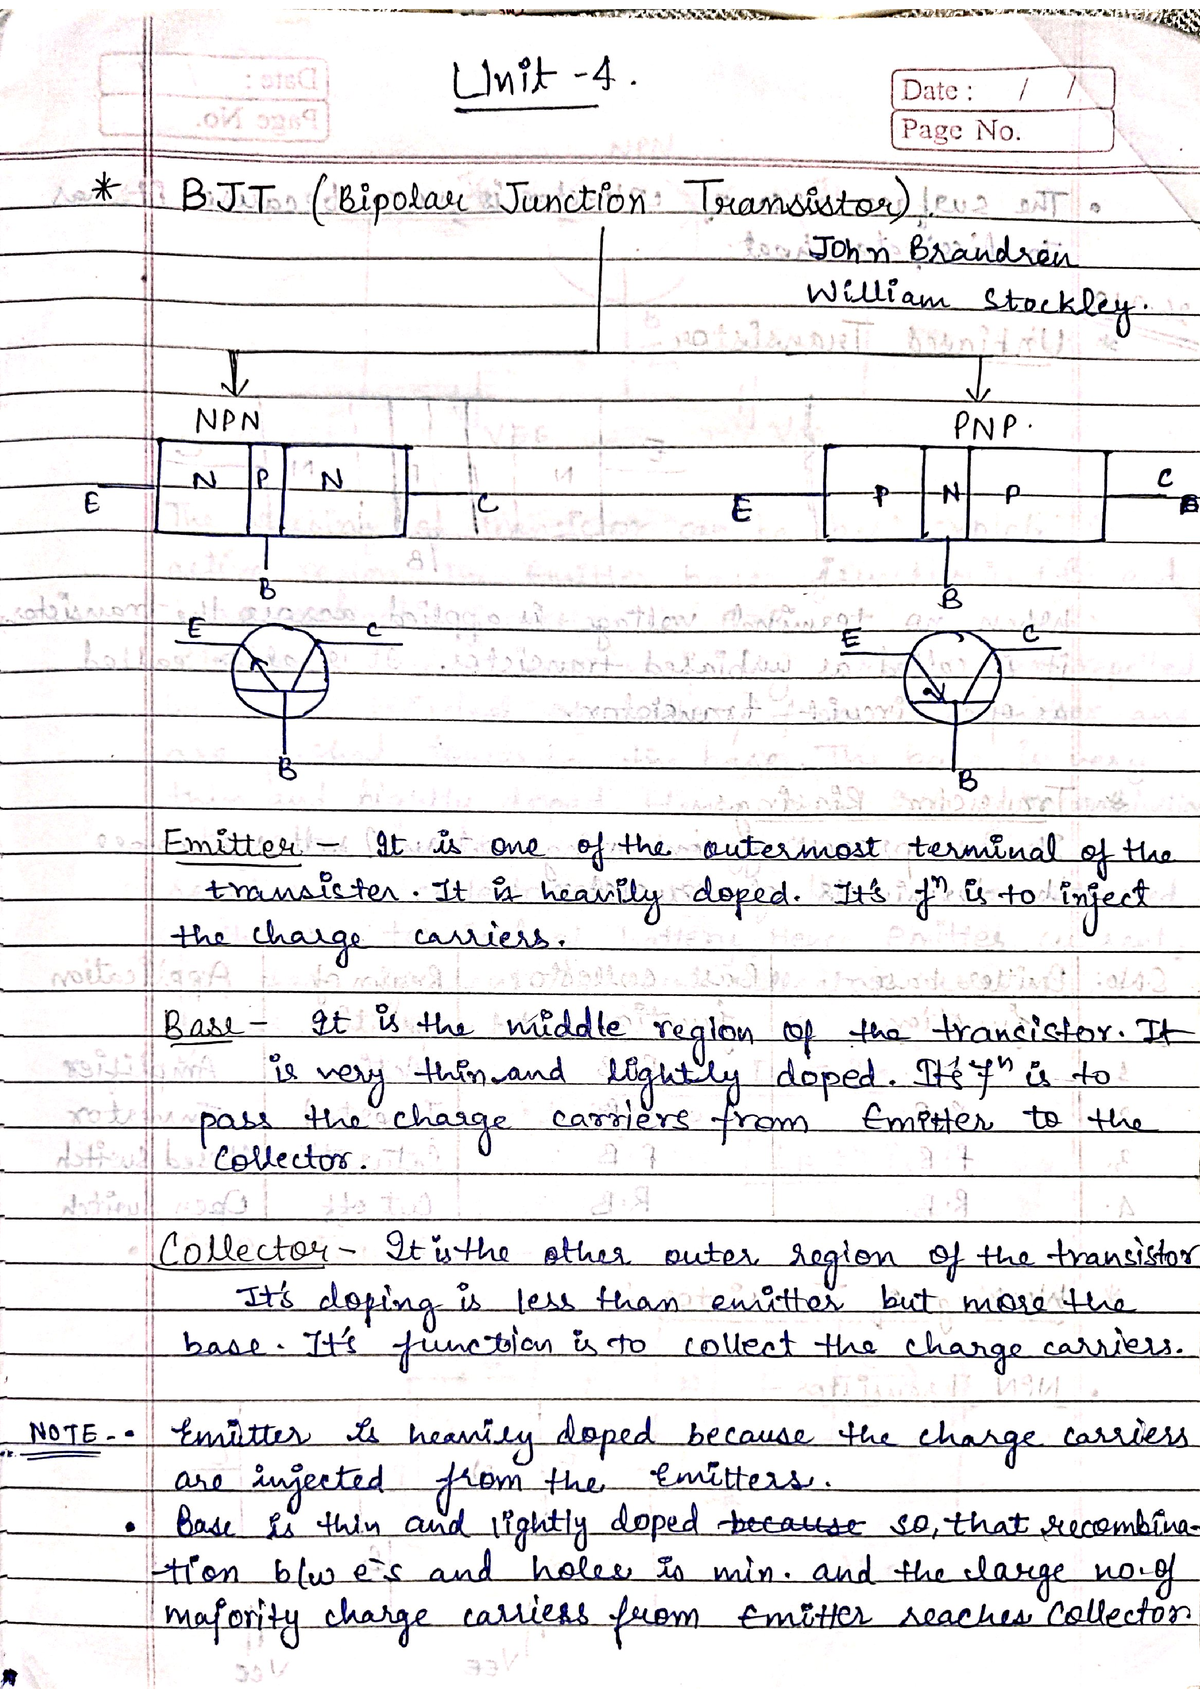 Unit - 4.
Date : / /
Page No.
* B.J.T. (Bipolar Junction Transistor).
John Brandren
William Stockley.
NPN
PNP.
N P N
P N P
E
C
E
C
B
B
E C
E C
B
B
Emitter - It is one of the outermost terminal of the
transister. It is heavily doped. It's fⁿ is to inject
the charge carriers.
Base - It is the middle region of the trancistor. It
is very thin and lightly doped. It's fⁿ is to
pass the charge carriers from Emitter to the
Collector.
Collector - It is the other outer region of the transistor
It's doping is less than emitter but more the
base. It's function is to collect the charge carriers.
NOTE - • Emitter is heavily doped because the charge carriers
are injected from the Emitters.
• Base is thin and lightly doped because so, that recombina-
tion b/w e⁻s and holes is min. and the large no. of
majority charge carriers from Emitter reaches Collector